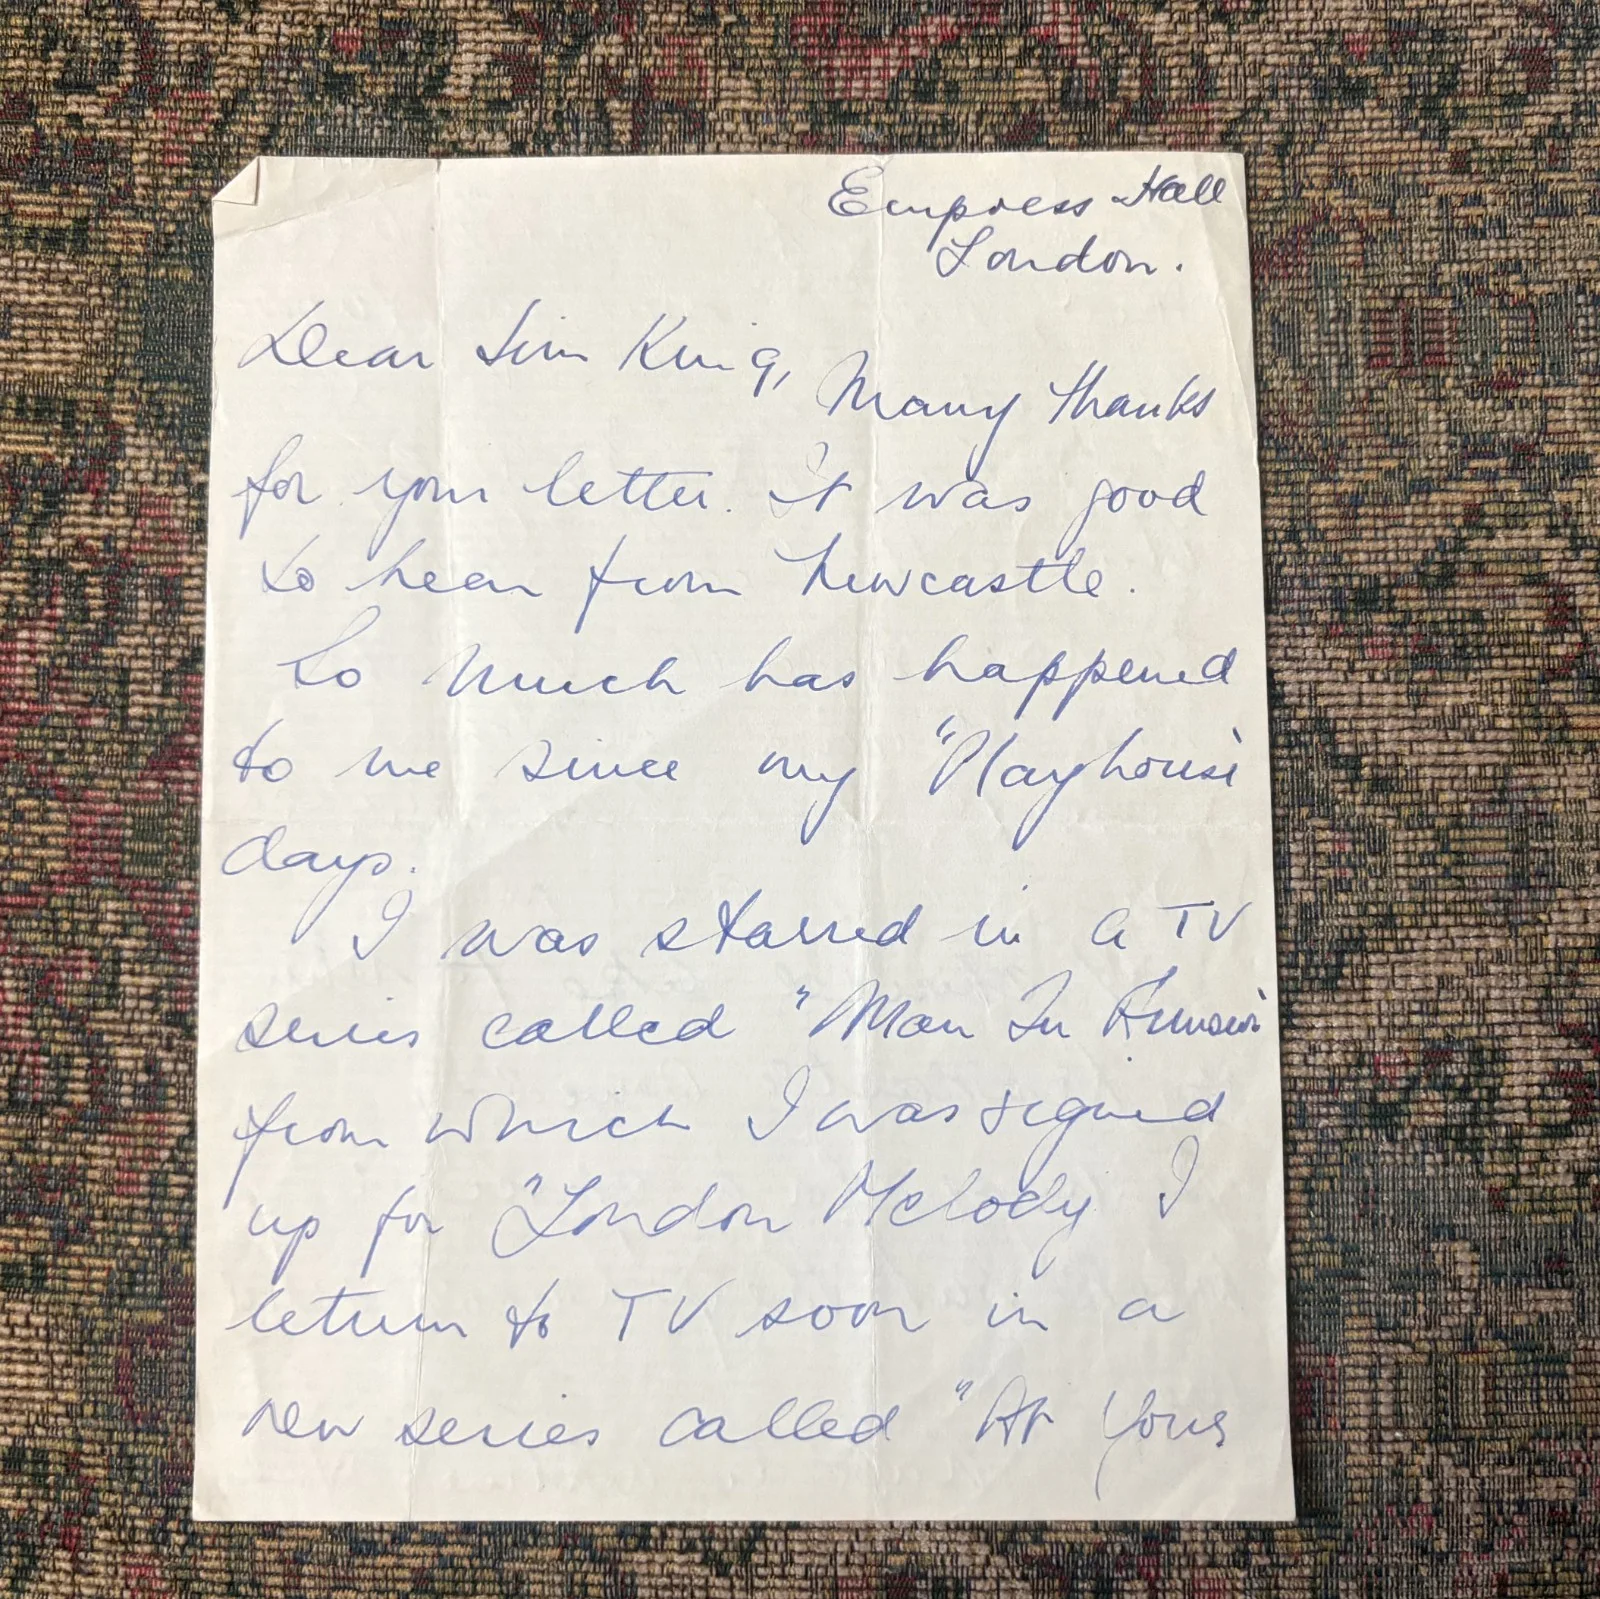 Empress Hall
London.
Dear Jim King,
Many thanks
for your letter. It was good
to hear from Newcastle.
So much has happened
to me since my "Playhouse"
days.
I was starred in a TV
series called "Man In
from which I was signed
up for "London Melody I
return to TV soon in a
new series called "At Your